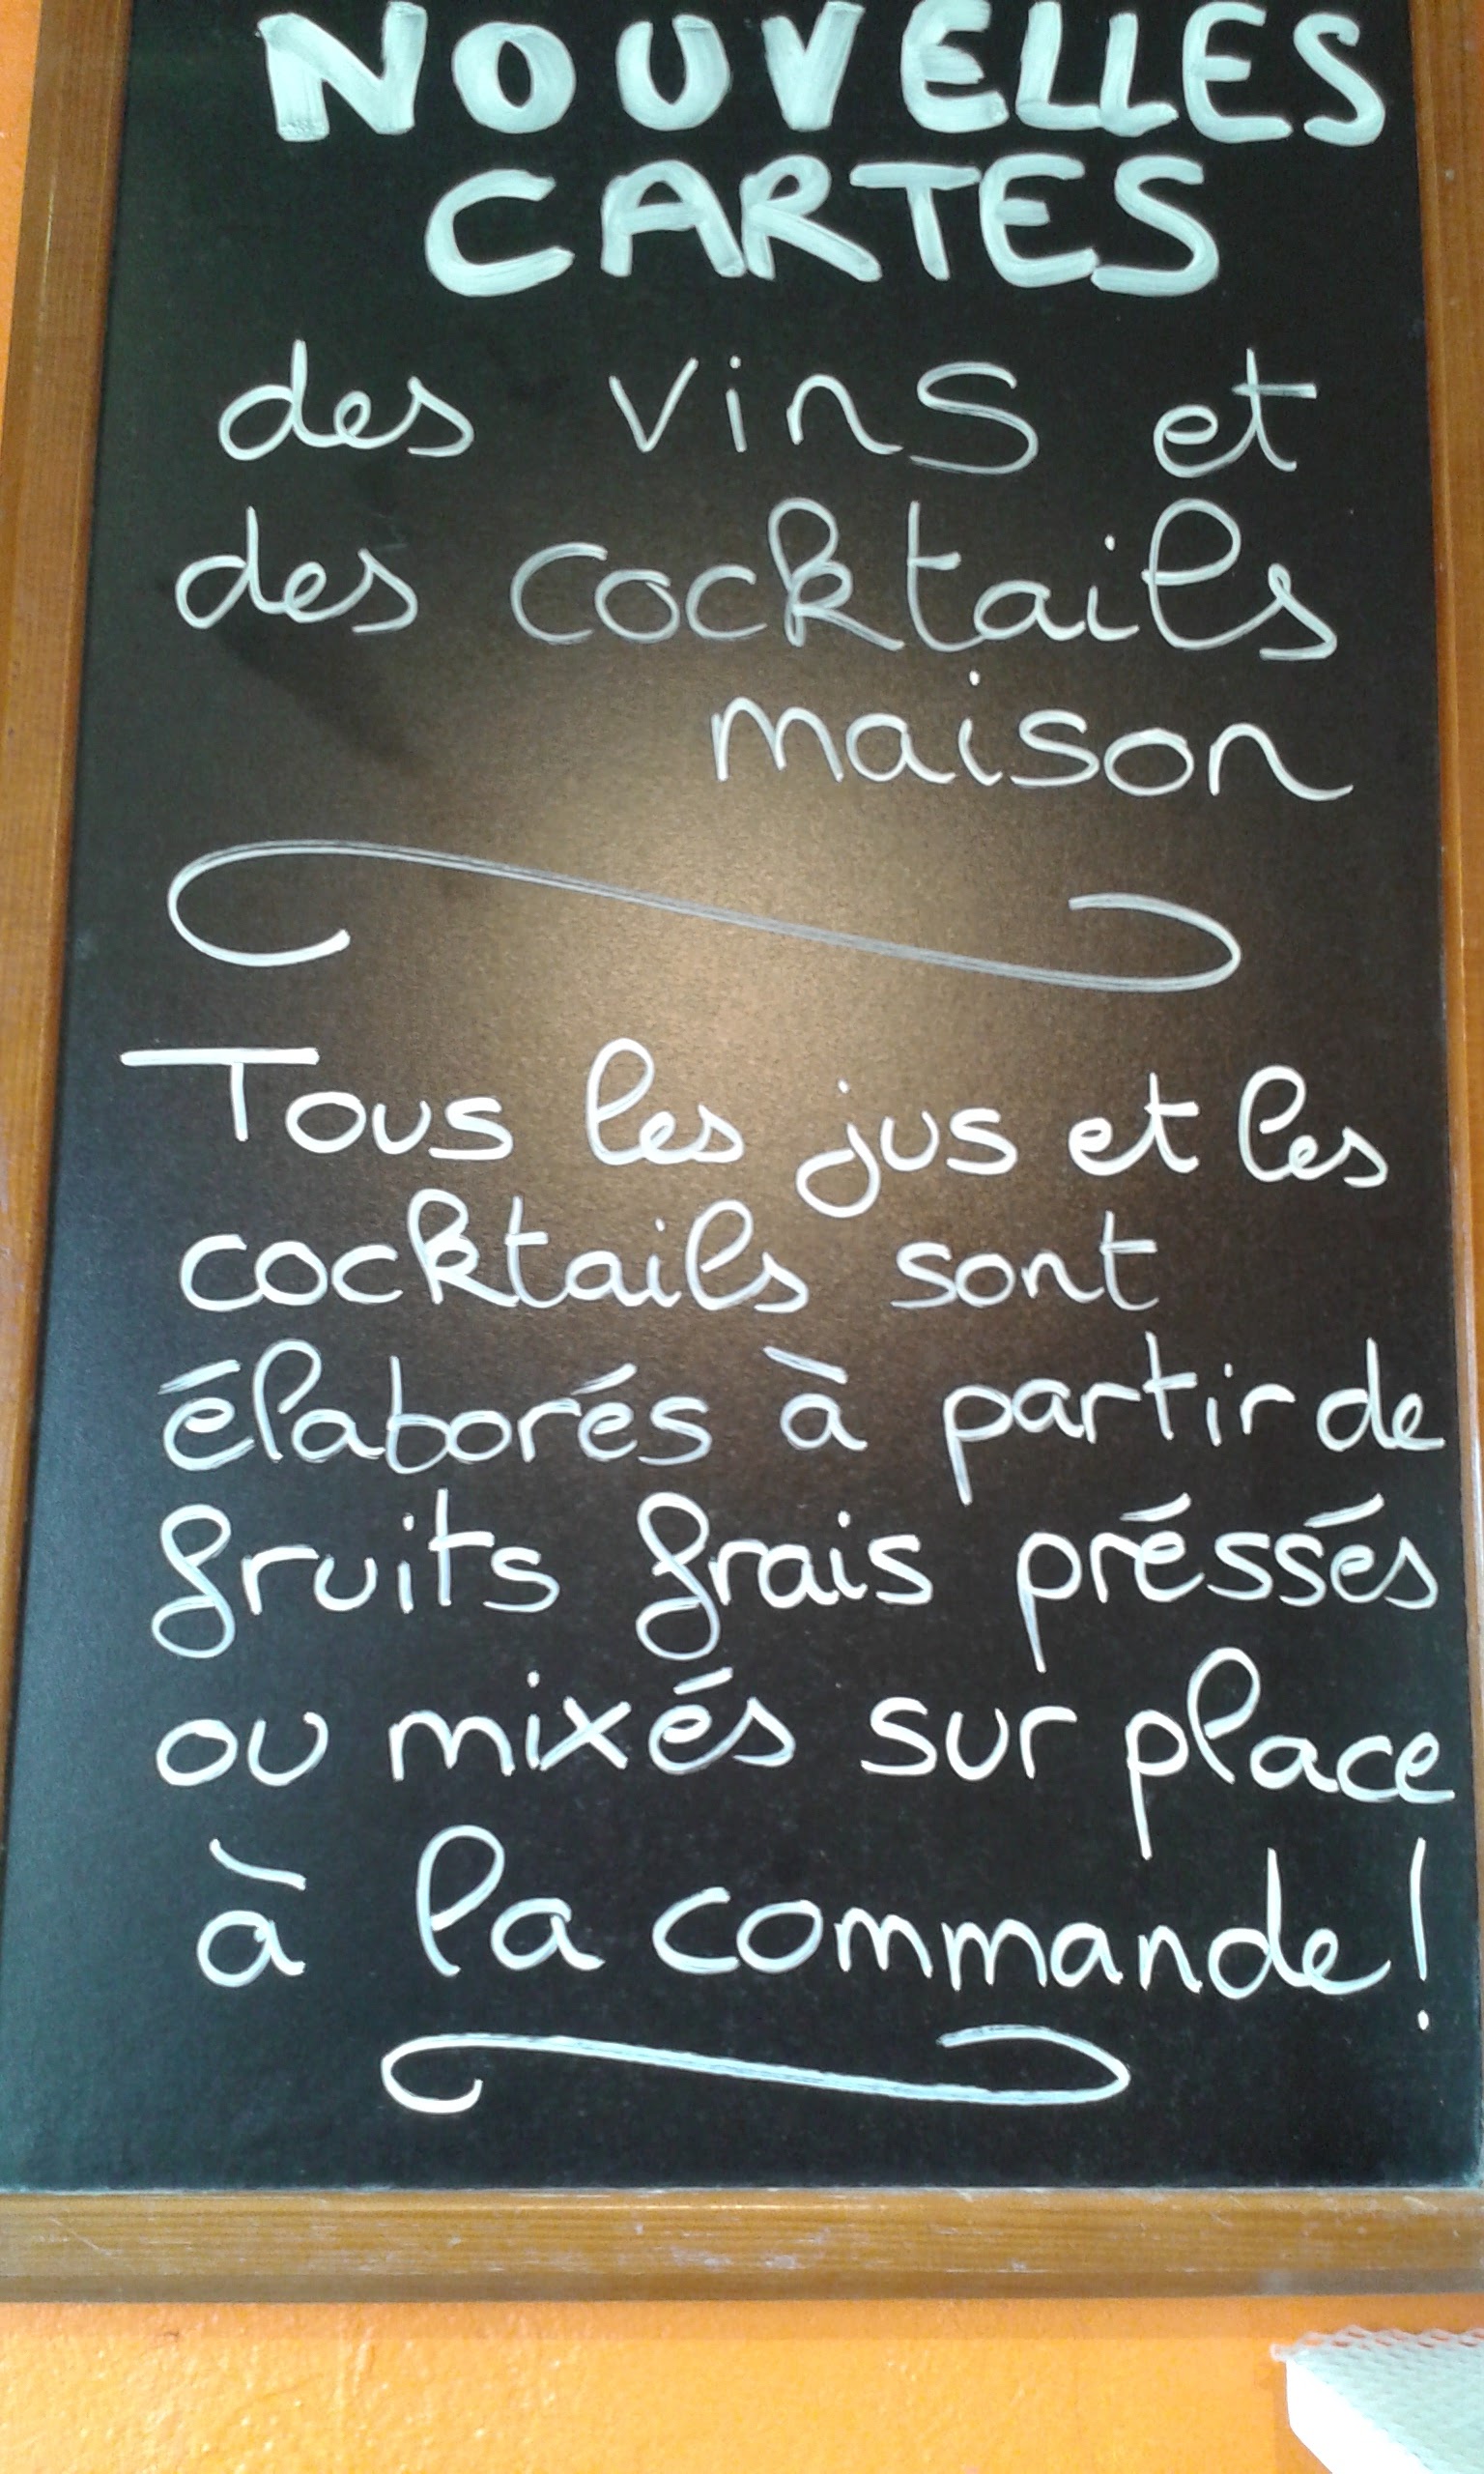 NOUVELLES
CARTES
des vins et
des cocktails
maison
Tous les jus et les
cocktails sont
élaborés à partir de
fruits frais préssés
ou mixés sur place
à la commande!